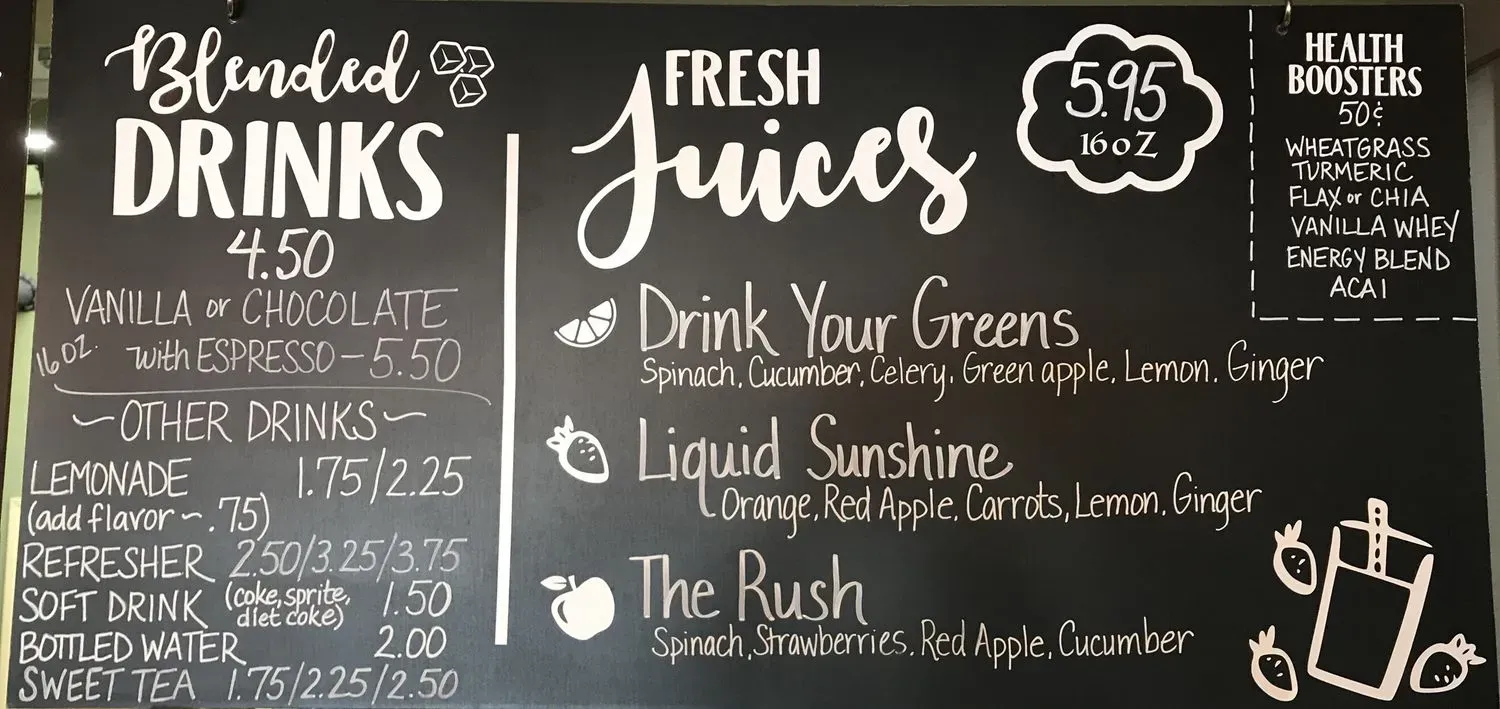 Blended
DRINKS
4.50
VANILLA or CHOCOLATE
16 oz. with ESPRESSO - 5.50
~OTHER DRINKS~
LEMONADE 1.75/2.25
(add flavor ~ .75)
REFRESHER 2.50/3.25/3.75
SOFT DRINK (coke, sprite, diet coke) 1.50
BOTTLED WATER 2.00
SWEET TEA 1.75/2.25/2.50
FRESH
Juices
5.95
16 oz
Drink Your Greens
Spinach, Cucumber, Celery, Green apple, Lemon, Ginger
Liquid Sunshine
Orange, Red Apple, Carrots, Lemon, Ginger
The Rush
Spinach, Strawberries, Red Apple, Cucumber
HEALTH
BOOSTERS
50¢
WHEATGRASS
TURMERIC
FLAX or CHIA
VANILLA WHEY
ENERGY BLEND
ACAI